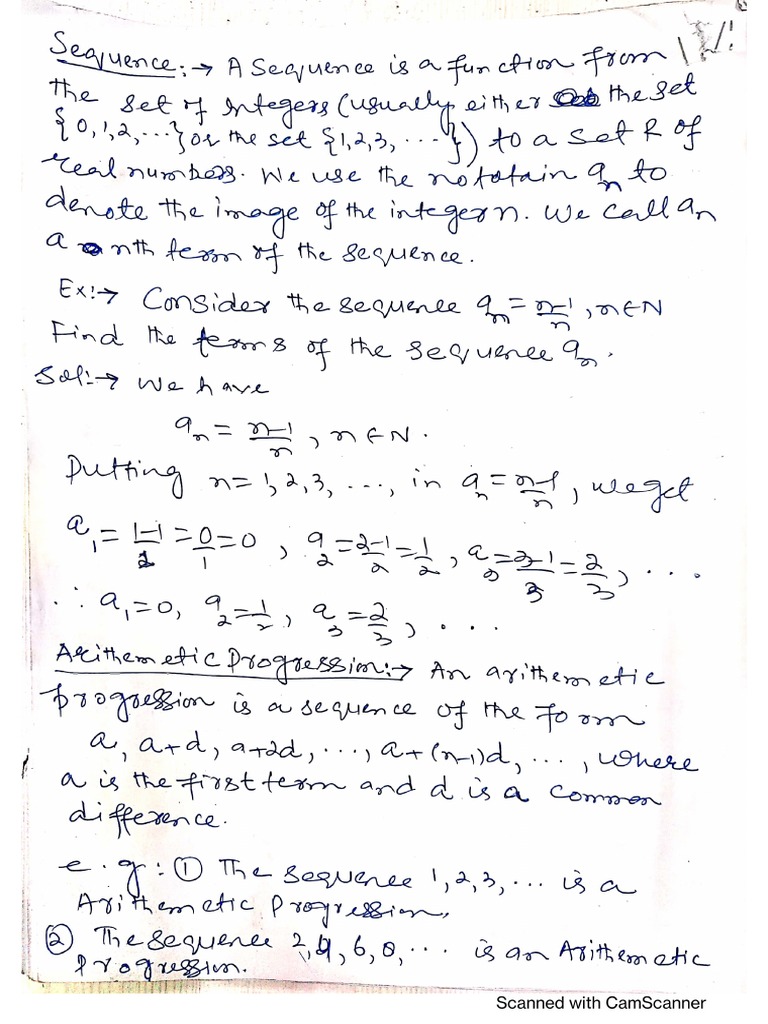 Sequence:→ A Sequence is a function from
the set of integers (usually either the set
{0,1,2,...} or the set {1,2,3,...}) to a set R of
real numbers. We use the notatain aₙ to
denote the image of the integer n. We call aₙ
a nth term of the sequence.
Ex:→ Consider the sequence aₙ = n-1/n, n∈N
Find the terms of the sequence aₙ.
Sol:→ We have
aₙ = n-1/n, n∈N.
Putting n=1,2,3,..., in aₙ = n-1/n, we get
a₁ = 1-1/1 = 0/1 = 0, a₂ = 2-1/2 = 1/2, a₃ = 3-1/3 = 2/3, ....
∴ a₁=0, a₂=1/2, a₃=2/3, ....
Arithemetic Progression:→ An arithemetic
progression is a sequence of the form
a, a+d, a+2d, ..., a+(n-1)d, ..., where
a is the first term and d is a common
difference.
e.g: ① The sequence 1,2,3,... is a
Arithemetic Progression.
② The sequence 2,4,6,0,... is an Arithemetic
Progression.
Scanned with CamScanner